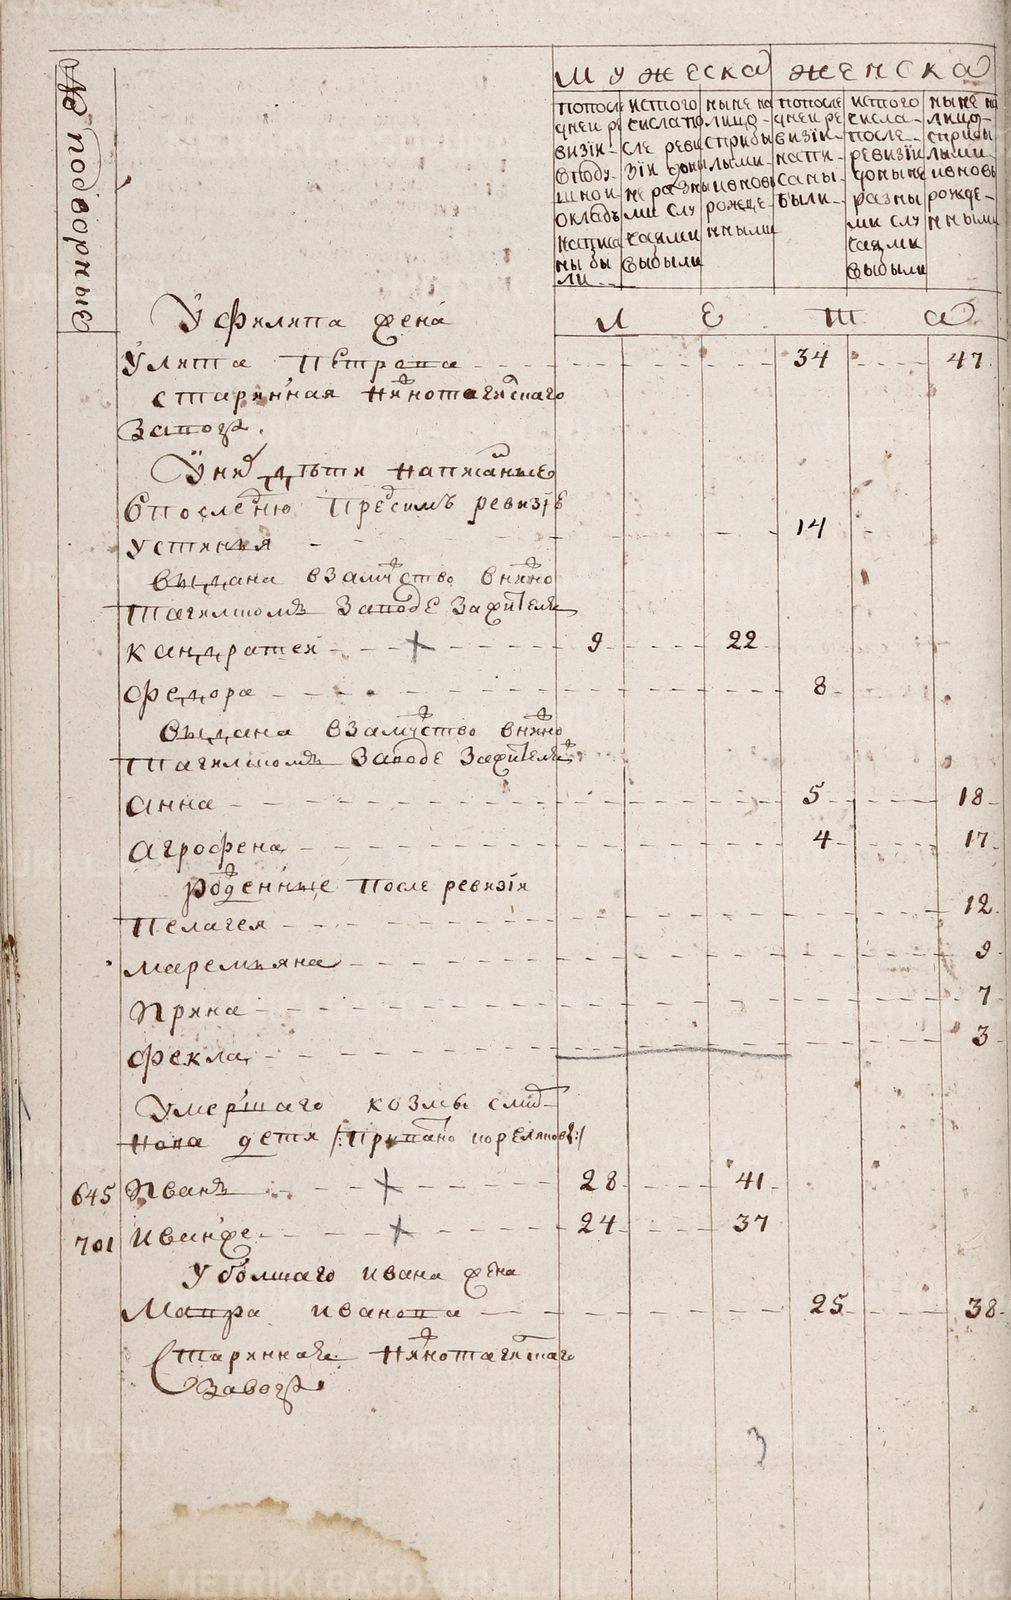 № подворные
мужеска женска
попосле
дней ре
визіи
вподу
шной
окладъ
написа
ны бы
ли
истого
числа по
сле реви
зіи доны
не разны
ми слу
чаями
выбыли
ныне на
лицо
сприбы
лыми
ивновь
рожде
нными
попосле
дней ре
визіи
напи
саны
были
истого
числа
после
ревизіи
доныне
разны
ми слу
чаями
выбыли
ныне на
лицо
сприбы
лыми
ивновь
рожде
нными
л е т а
У филипа жена
улита Петрова 34 47
старинная нижнотагилскаго
завода.
У них дети написанные
впоследнюю пред симъ ревизіе
устинья 14
выдана взамужство внижно
тагилскомъ заводе зажителя
кандратей 9 22
федора 8
выдана взамужство внижно
тагилскомъ заводе зажителя
анна 5 18
агрофена 4 17
рожденные после ревизіи
Пелагея 12
маремьяна 9
Ирина 7
фекла 3
Умершаго козмы смир
нова дети /: :/
645 Иванъ 28 41
701 иванже 24 37
У болшаго ивана жена
Мавра иванова 25 38
Старинная нижнотагилскаго
завода
3
METRIKI.GASO-URAL.RU